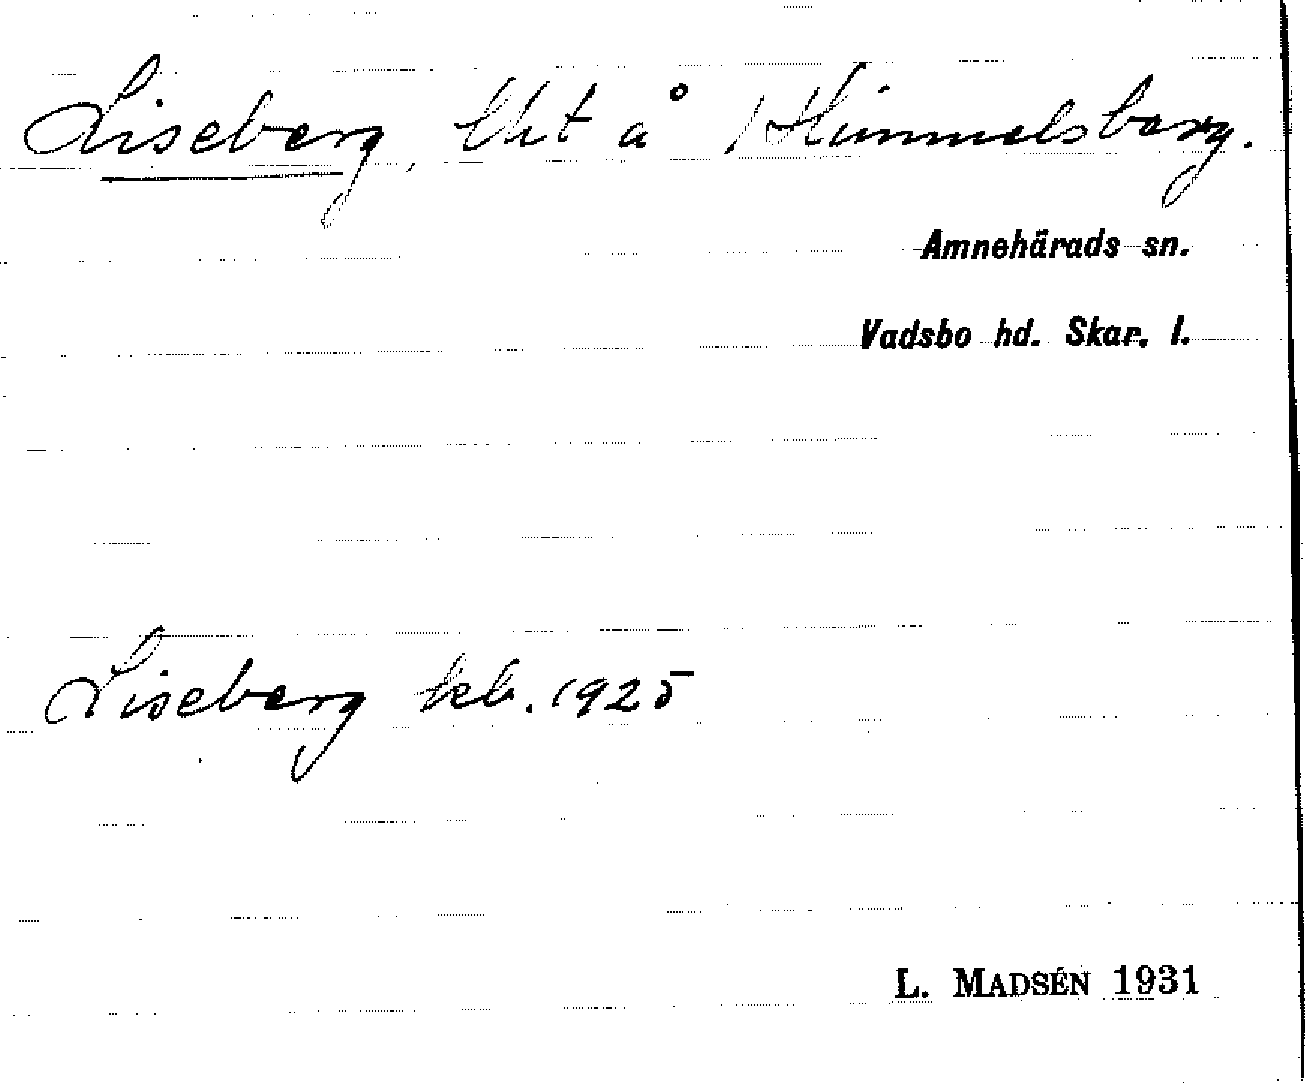 Liseberg, lht å Himmelsberg.
Amnehärads sn.
Vadsbo hd. Skar. l.
Liseberg 1925
L. MADSÉN 1931